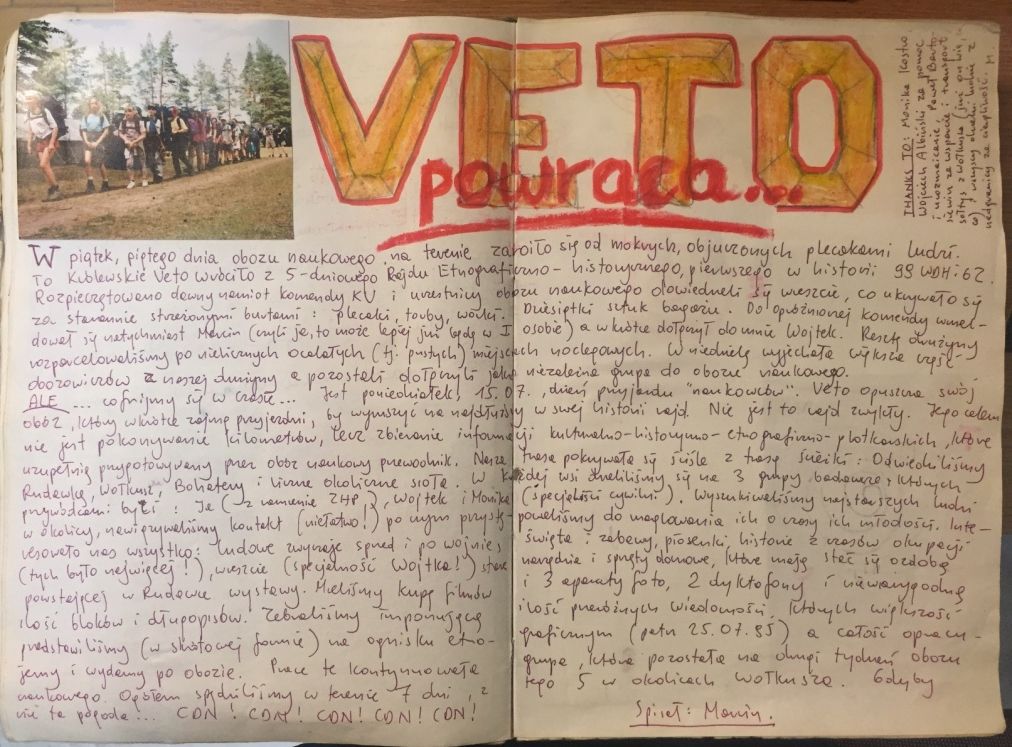 VETO
powraca...
THANKS TO: Monika Kostro,
Wojciech Albiński za pomoc
i urozmaicanie, Paweł
za wsparcie i transport
sołtys z Wołkusza (już on wie za
co) wszyscy okoliczni ludzie z
za cierpliwość. M.
W piątek, piątego dnia obozu naukowego, na terenie zaroiło się od mokrych, objuczonych plecakami ludzi.
To Veto wróciło z 5-dniowego Rajdu Etnograficzno-historycznego, pierwszego w historii 99 WDH-62.
Rozpieczętowano dawny namiot komendy KV i uczestnicy obozu naukowego dowiedzieli się wreszcie, co ukrywało się
za starannie strzeżonymi burtami: plecaki, torby, worki. Dziesiątki sztuk bagażu. Do opróżnionej komendy wmel-
dował się natychmiast Marcin (czyli ja, to może lepiej już będę w I osobie) a wkrótce dołączył do mnie Wojtek. Resztę drużyny
rozparcelowaliśmy po nielicznych ocalałych (tj. pustych) miejscach noclegowych. W niedzielę wyjechała większa część
obozowiczów z naszej drużyny a pozostali dołączyli jako niezależna grupa do obozu naukowego.
ALE ... cofnijmy się w czasie... Jest poniedziałek, 15.07., dzień przyjazdu "naukowców". Veto opuszcza swój
obóz, który wkrótce zajmą przyjezdni, by wyruszyć na najdłuższy w swej historii rajd. Nie jest to rajd zwykły. Jego celem
nie jest pokonywanie kilometrów, lecz zbieranie informacji kulturalno-historyczno-etnograficzno-plotkarskich, które
uzupełnią przygotowywany przez obóz naukowy przewodnik. Nasza trasa pokrywała się ściśle z trasą ścieżki: Odwiedziliśmy
Rudawkę, Wołkusz, Bohatery i liczne okoliczne sioła. W każdej wsi dzieliliśmy się na 3 grupy badawcze, których
przywódcami byli: Ja (z ramienia ZHP), Wojtek i Monika (specjaliści cywilni). Wyszukiwaliśmy najstarszych ludzi
w okolicy, nawiązywaliśmy kontakt (niełatwo!) po czym przystę- powaliśmy do maglowania ich o czasy ich młodości. Inte-
resowało nas wszystko: ludowe zwyczaje sprzed i po wojnie, święta i zabawy, piosenki, historie z czasów okupacji
(tych było najwięcej!), wreszcie (specjalność Wojtka!) stare narzędzia i sprzęty domowe, które mają stać się ozdobą
powstającej w Rudawce wystawy. Mieliśmy kupę filmów i 3 aparaty foto, 2 dyktofony i niewiarygodną
ilość bloków i długopisów. Zebraliśmy imponującą ilość przeróżnych wiadomości, których większość
przedstawiliśmy (w skrótowej formie) na ognisku etno- graficznym (patrz 25.07.95) a całość opracu-
jemy i wydamy po obozie. Prace te kontynuowała grupa, która pozostała na drugi tydzień obozu
naukowego. Ogółem spędziliśmy w terenie 7 dni, z tego 5 w okolicach Wołkusza. Gdyby
nie ta pogoda!... CDN! CDN! CDN! CDN! CDN!
Spisał: Marcin.